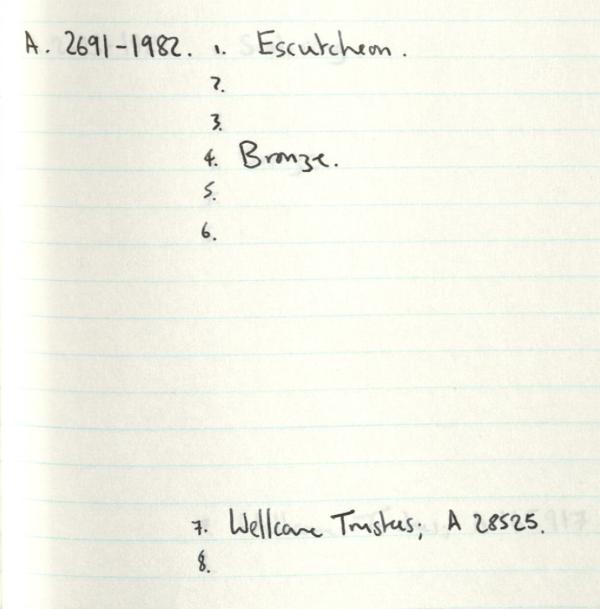 A. 2691-1982. 1. Escutcheon.
2.
3.
4. Bronze.
5.
6.
7. Wellcome Trustees; A 28525.
8.